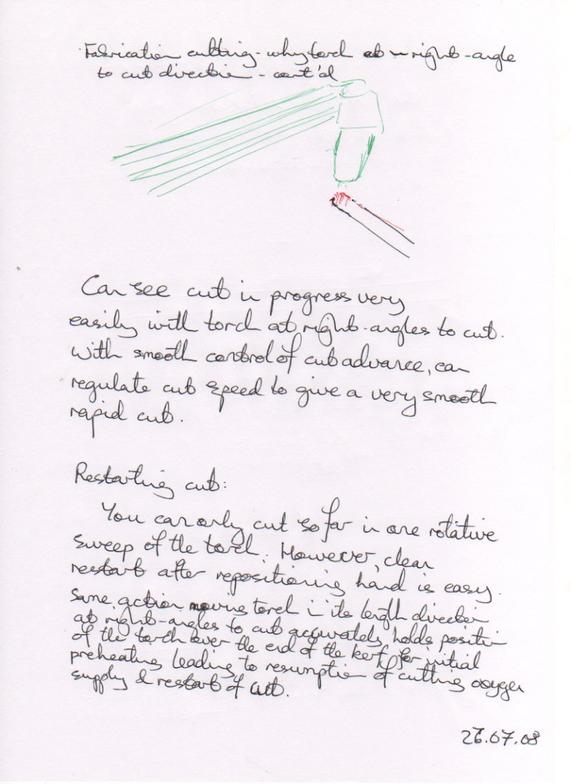 Fabrication cutting - why torch at right-angle
to cut direction - cont'd
Can see cut in progress very
easily with torch at right-angles to cut.
With smooth control of cut advance, can
regulate cut speed to give a very smooth
rapid cut.
Restarting cut:
You can only cut so far in one rotative
sweep of the torch. However, clean
restart after repositioning hand is easy.
Same action moving torch in its length direction
at right-angles to cut accurately holds position
of the torch over the end of the kerf for initial
preheating leading to resumption of cutting oxygen
supply & restart of cut.
26.07.08